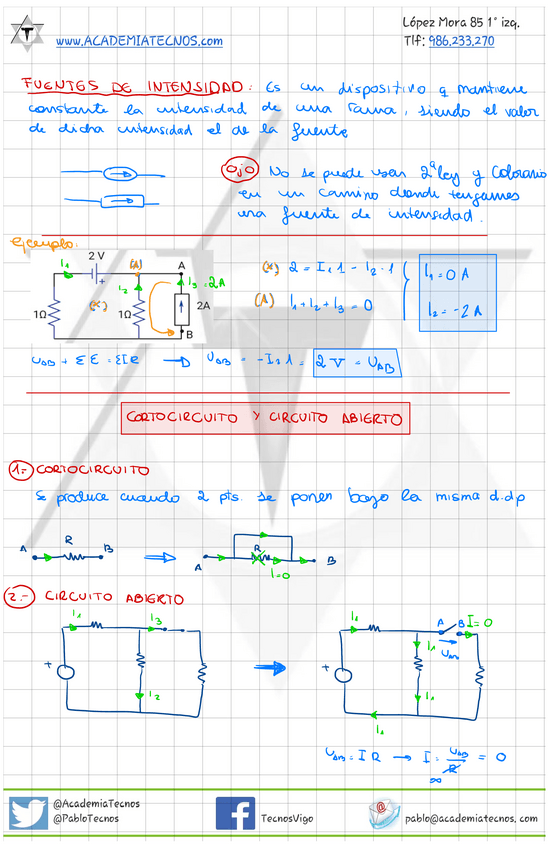 López Mora 85 1° izq.
www.ACADEMIATECNOS.com
Tlf: 986.233.270
T
FUENTES DE INTENSIDAD: Es un dispositivo q mantiene
constante la intensidad de una rama, siendo el valor
de dicha intensidad el de la fuente
Ojo No se puede usar 2ª ley y Colorario
en un camino donde tengamos
una fuente de intensidad.
Ejemplo:
I₁ 2 V (A) A
+ I₂ I₃=2A
1Ω (*) 1Ω 2A
B
(*) 2 = I₁·1 - I₂·1
(A) I₁+I₂+I₃=0
I₁=0 A
I₂=-2A
U_AB + ΣE = ΣIR → U_AB = -I₂·1 = 2V = U_AB
CORTOCIRCUITO Y CIRCUITO ABIERTO
1.- CORTOCIRCUITO
Se produce cuando 2 pts. se ponen bajo la misma d.d.p
A R B
A R B
I=0
2.- CIRCUITO ABIERTO
I₁ I₃
+
I₂
I₁ A B I=0
I₁ U_AB
+
I₁
I₁
U_AB = I R → I = U_AB/R = 0
∞
@AcademiaTecnos
@PabloTecnos
TecnosVigo
@
pablo@academiatecnos.com